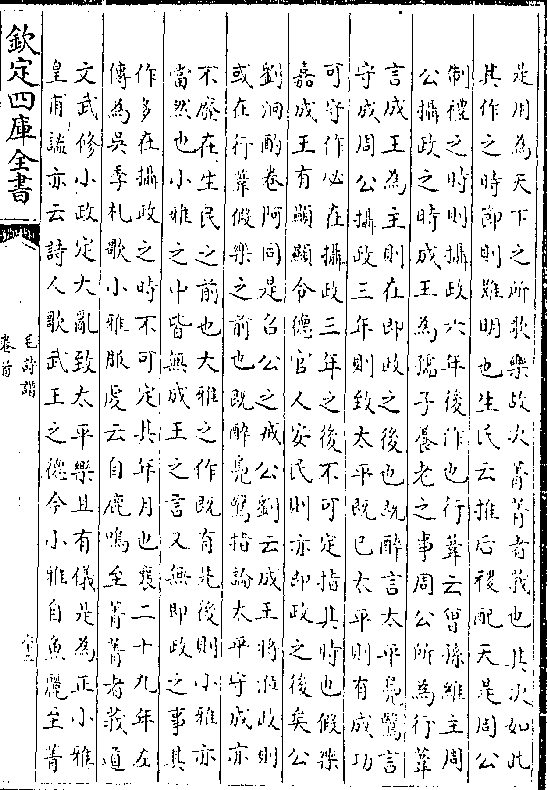 是用為天下之所歌樂故次菁菁者莪也其次如此
其作之時節則難明也生民云推后稷配天是周公
制禮之時則攝政六年後作也行葦云曾孫維主周
公攝政之時成王為孺子養老之事周公所為行葦
言成王為主則在即政之後也既醉言太平鳧鷖言
守成周公攝政三年則致太平既已太平則有成功
可守作必在攝政三年之後不可定指其時也假樂
嘉成王有顯顯令德官人安民則亦即政之後矣公
劉泂酌卷阿同是召公之戒公劉云成王將涖政則
或在行葦假樂之前也既醉鳧鷖指論太平守成亦
不廢在生民之前也大雅之作既有先後則小雅亦
當然也小雅之中皆無成王之言又無即政之事其
作多在攝政之時不可定其年月也襄二十九年左
傳為吳季札歌小雅服虔云自鹿鳴至菁菁者莪道
文武修小政定大亂致太平樂且有儀是為正小雅
皇甫謐亦云詩人歌武王之德今小雅自魚麗至菁
欽定四庫全書
毛詩譜
卷首